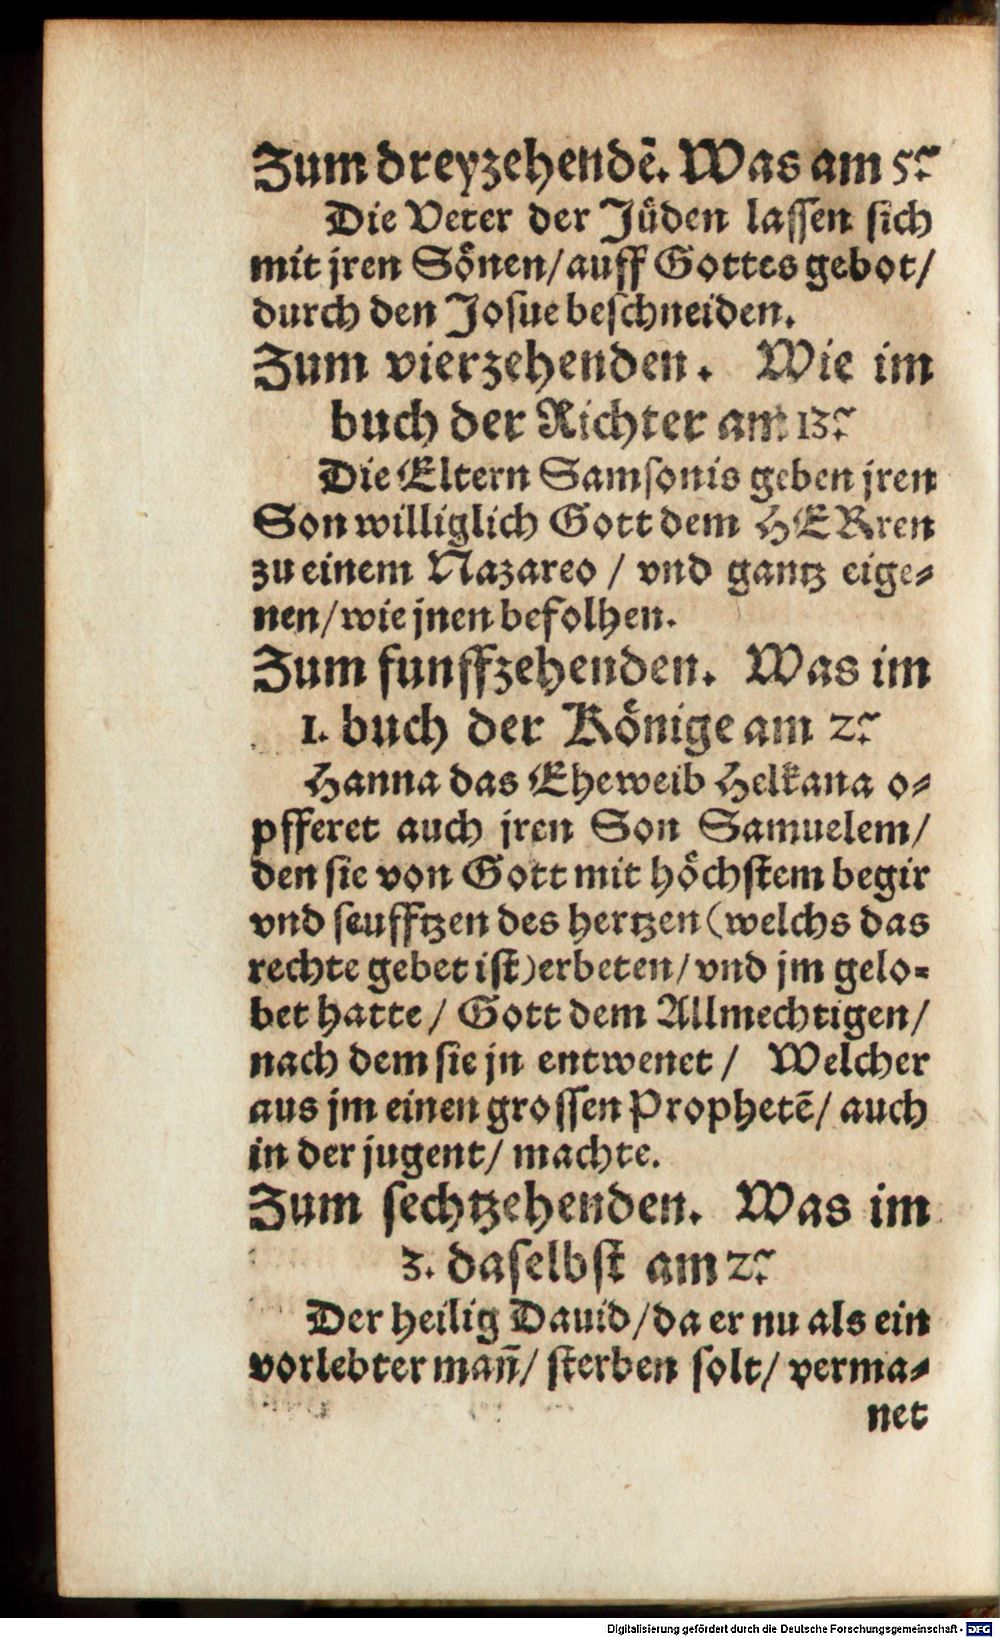 Zum dreyzehendē. Was am 5.
Die Veter der Jüden lassen sich
mit jren Sönen/ auff Gottes gebot/
durch den Josue beschneiden.
Zum vierzehenden. Wie im
buch der Richter am 13.
Die Eltern Samsonis geben jren
Son williglich Gott dem HERren
zu einem Nazareo / vnd gantz eige-
nen/ wie jnen befolhen.
Zum funffzehenden. Was im
1. buch der Könige am 2.
Hanna das Eheweib Helkana o-
pfferet auch jren Son Samuelem/
den sie von Gott mit höchstem begir
vnd seufftzen des hertzen (welchs das
rechte gebet ist) erbeten/ vnd jm gelo-
bet hatte/ Gott dem Allmechtigen/
nach dem sie jn entwenet / Welcher
aus jm einen grossen Prophetē/ auch
in der jugent/ machte.
Zum sechtzehenden. Was im
3. daselbst am 2.
Der heilig Dauid/ da er nu als ein
vorlebter man̄/ sterben solt/ verma-
net
Digitalisierung gefördert durch die Deutsche Forschungsgemeinschaft - DFG